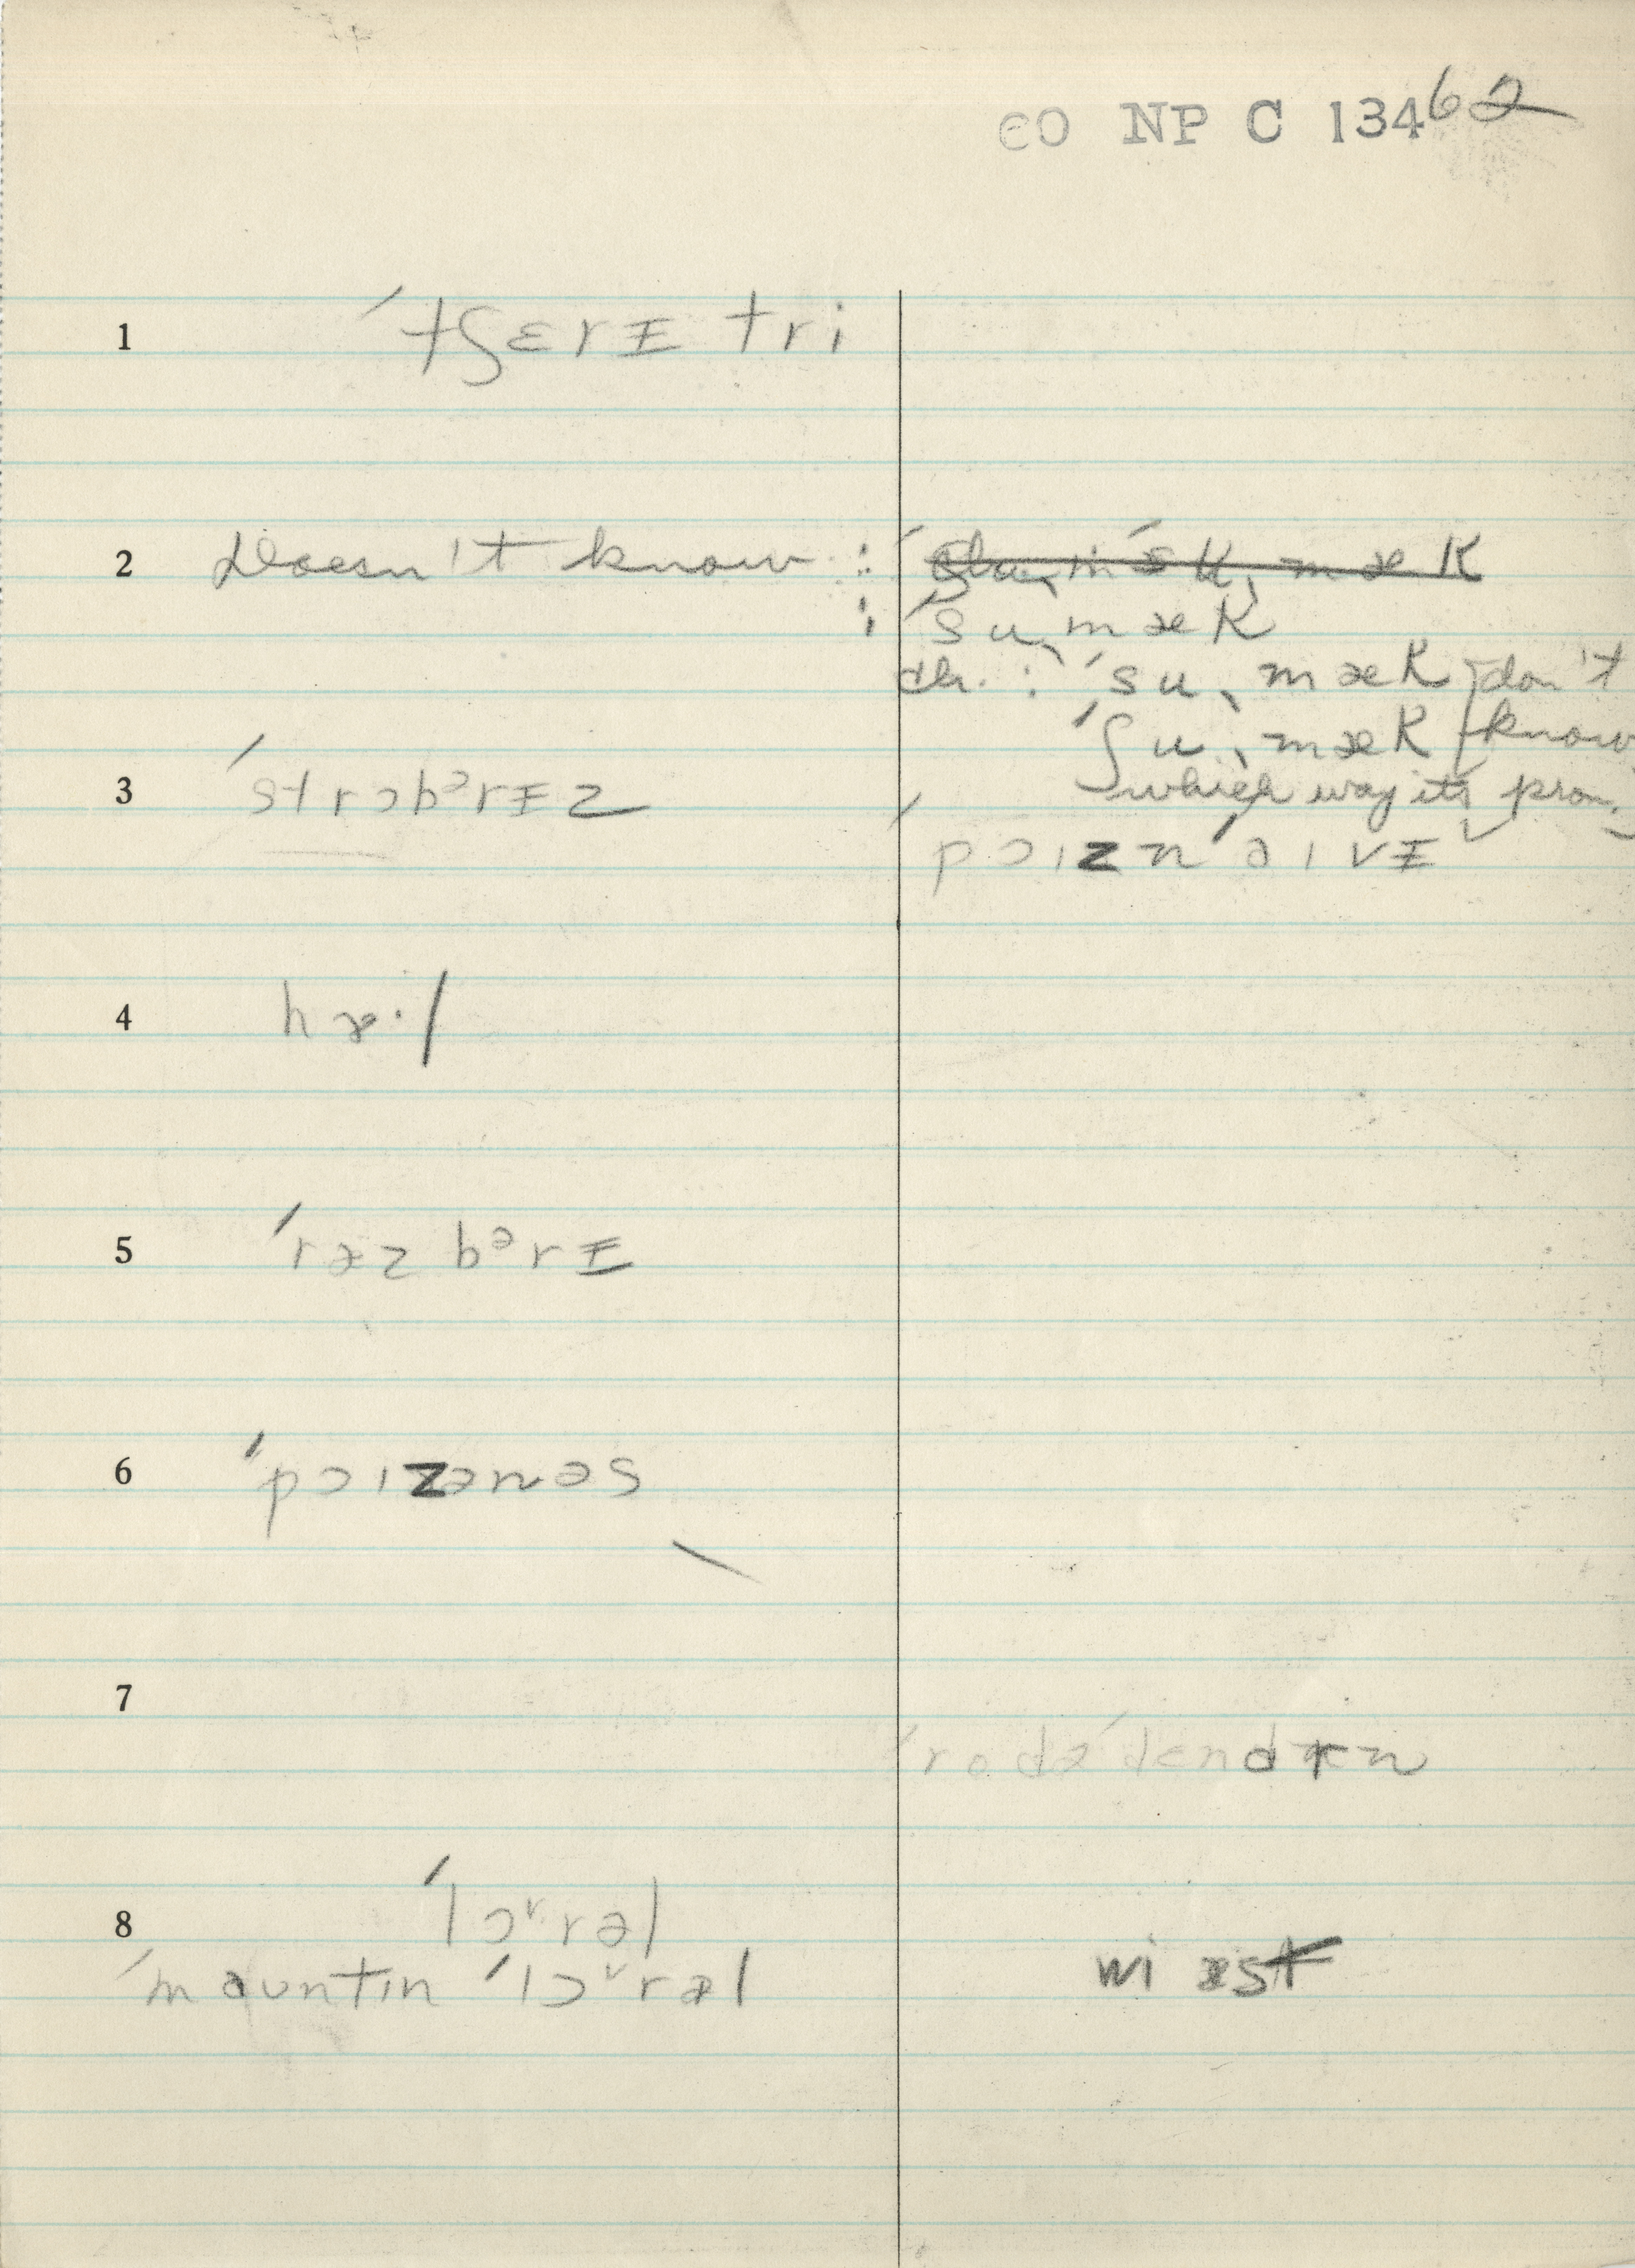 CO NP C 13462
1 ˈtʃɛrɪ tri
2 Doesn't know :
ˈsuˌmæk
ch. : ˈsuˌmæk } don't
ˈʃuˌmæk } know
which way its pron.
3 ˈstrɔbᵊrɪz
ˈpɔɪznˈaɪvɪ
4 hæ·l
5 ˈræzbᵊrɪ
6 ˈpɔɪzənəs
7
ˈrodəˈdɛndrn
8 ˈlɔʳrəl
ˈmauntɪn ˈlɔʳrəl